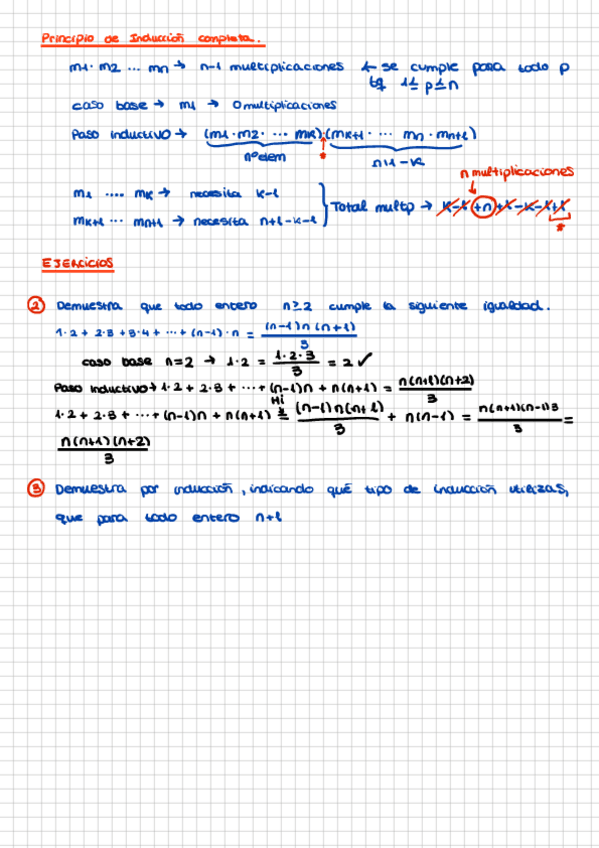 Principio de Inducción completa.
m1 · m2 ... mn → n-1 multiplicaciones ← se cumple para todo p
tq 1 ≤ p ≤ n
caso base → m1 → 0 multiplicaciones
Paso inductivo → (m1 · m2 · ... mk) · (mk+1 · ... mn · mn+1)
nº elem * n+1-k
n multiplicaciones
m1 .... mk → necesita k-1
mk+1 ... mn+1 → necesita n+1-k-1
Total multp → k-1+n+1-k-1+1
*
EJERCICIOS
② Demuestra que todo entero n ≥ 2 cumple la siguiente igualdad.
1·2 + 2·3 + 3·4 + ... + (n-1)·n = (n-1)n(n+1)/3
caso base n=2 → 1·2 = 1·2·3/3 = 2 ✓
Paso inductivo → 1·2 + 2·3 + ... + (n-1)n + n(n+1) = n(n+1)(n+2)/3
HI
1·2 + 2·3 + ... + (n-1)n + n(n+1) = (n-1)n(n+1)/3 + n(n-1) = n(n+1)(n-1)3/3 =
n(n+1)(n+2)/3
③ Demuestra por inducción, indicando qué tipo de inducción utilizas,
que para todo entero n+1